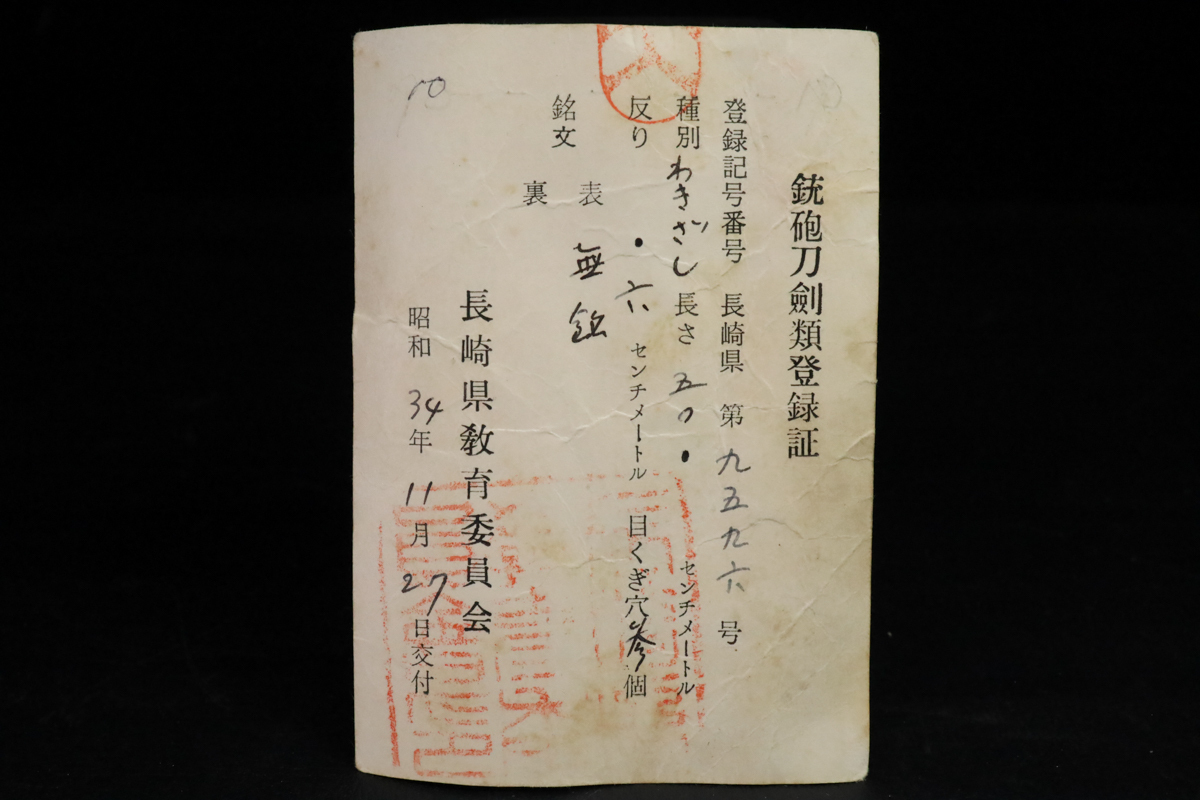 銃砲刀劍類登録証
登録記号番号 長崎県 第 九五九六 号
種別 わきざし 長さ 五〇・ センチメートル
反り ・六 センチメートル 目くぎ穴 参 個
銘文
表 無銘
裏
長崎県教育委員会
昭和 34年 11月 27日交付